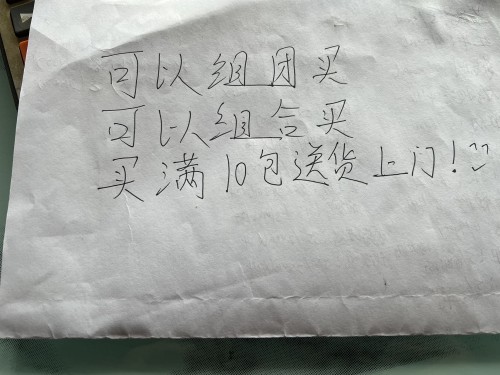 可以组团买
可以组合买
买满10包送货上门!